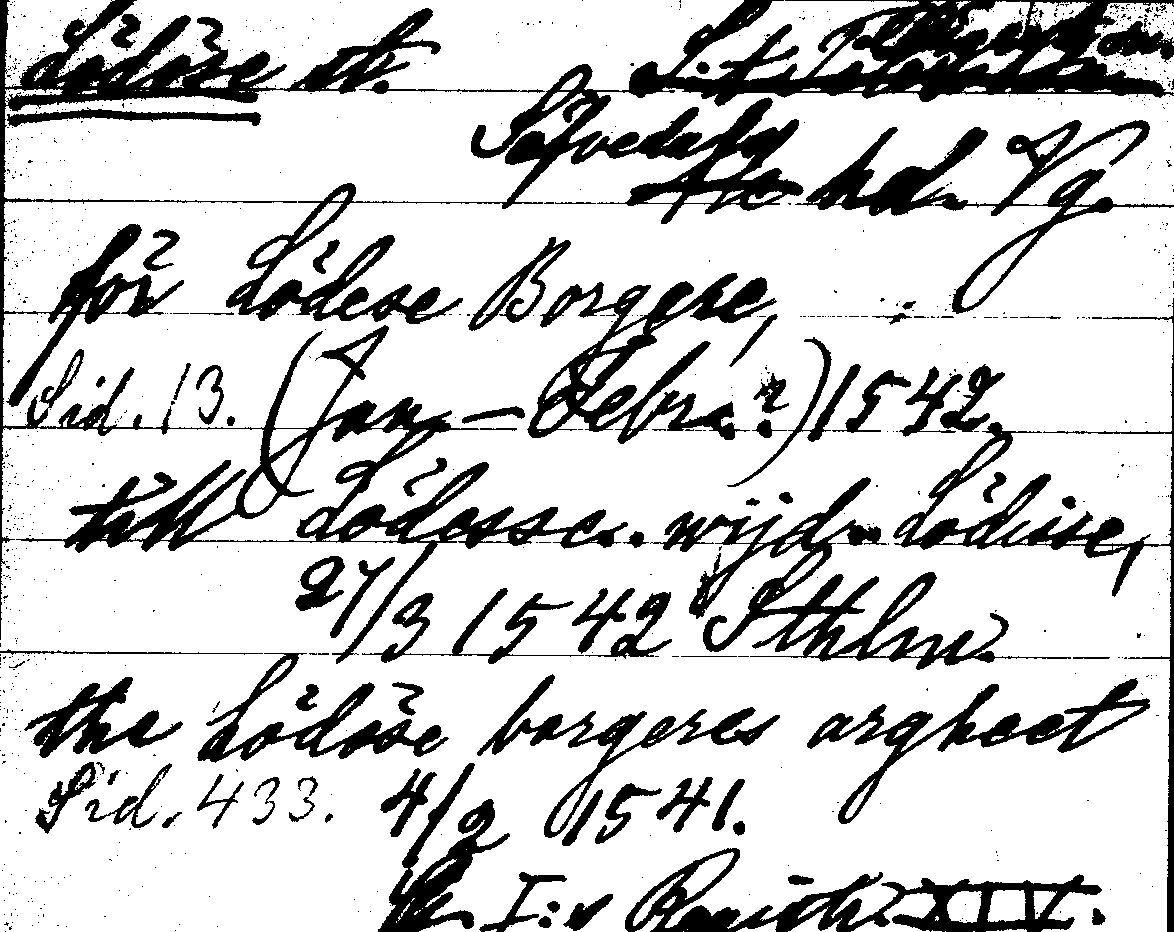 Lödöse st.
Säfvedals hd. Vg.
för Lödese Borgere,
Sid. 13. (Jan. – Febr.?) 1542.
till Lödesse. wijdh Lödisse,
27/3 1542 Sthlm.
the Lödöse borgeres argheet
Sid. 433. 4/2 1541.
G. I:s Registr. XIV.